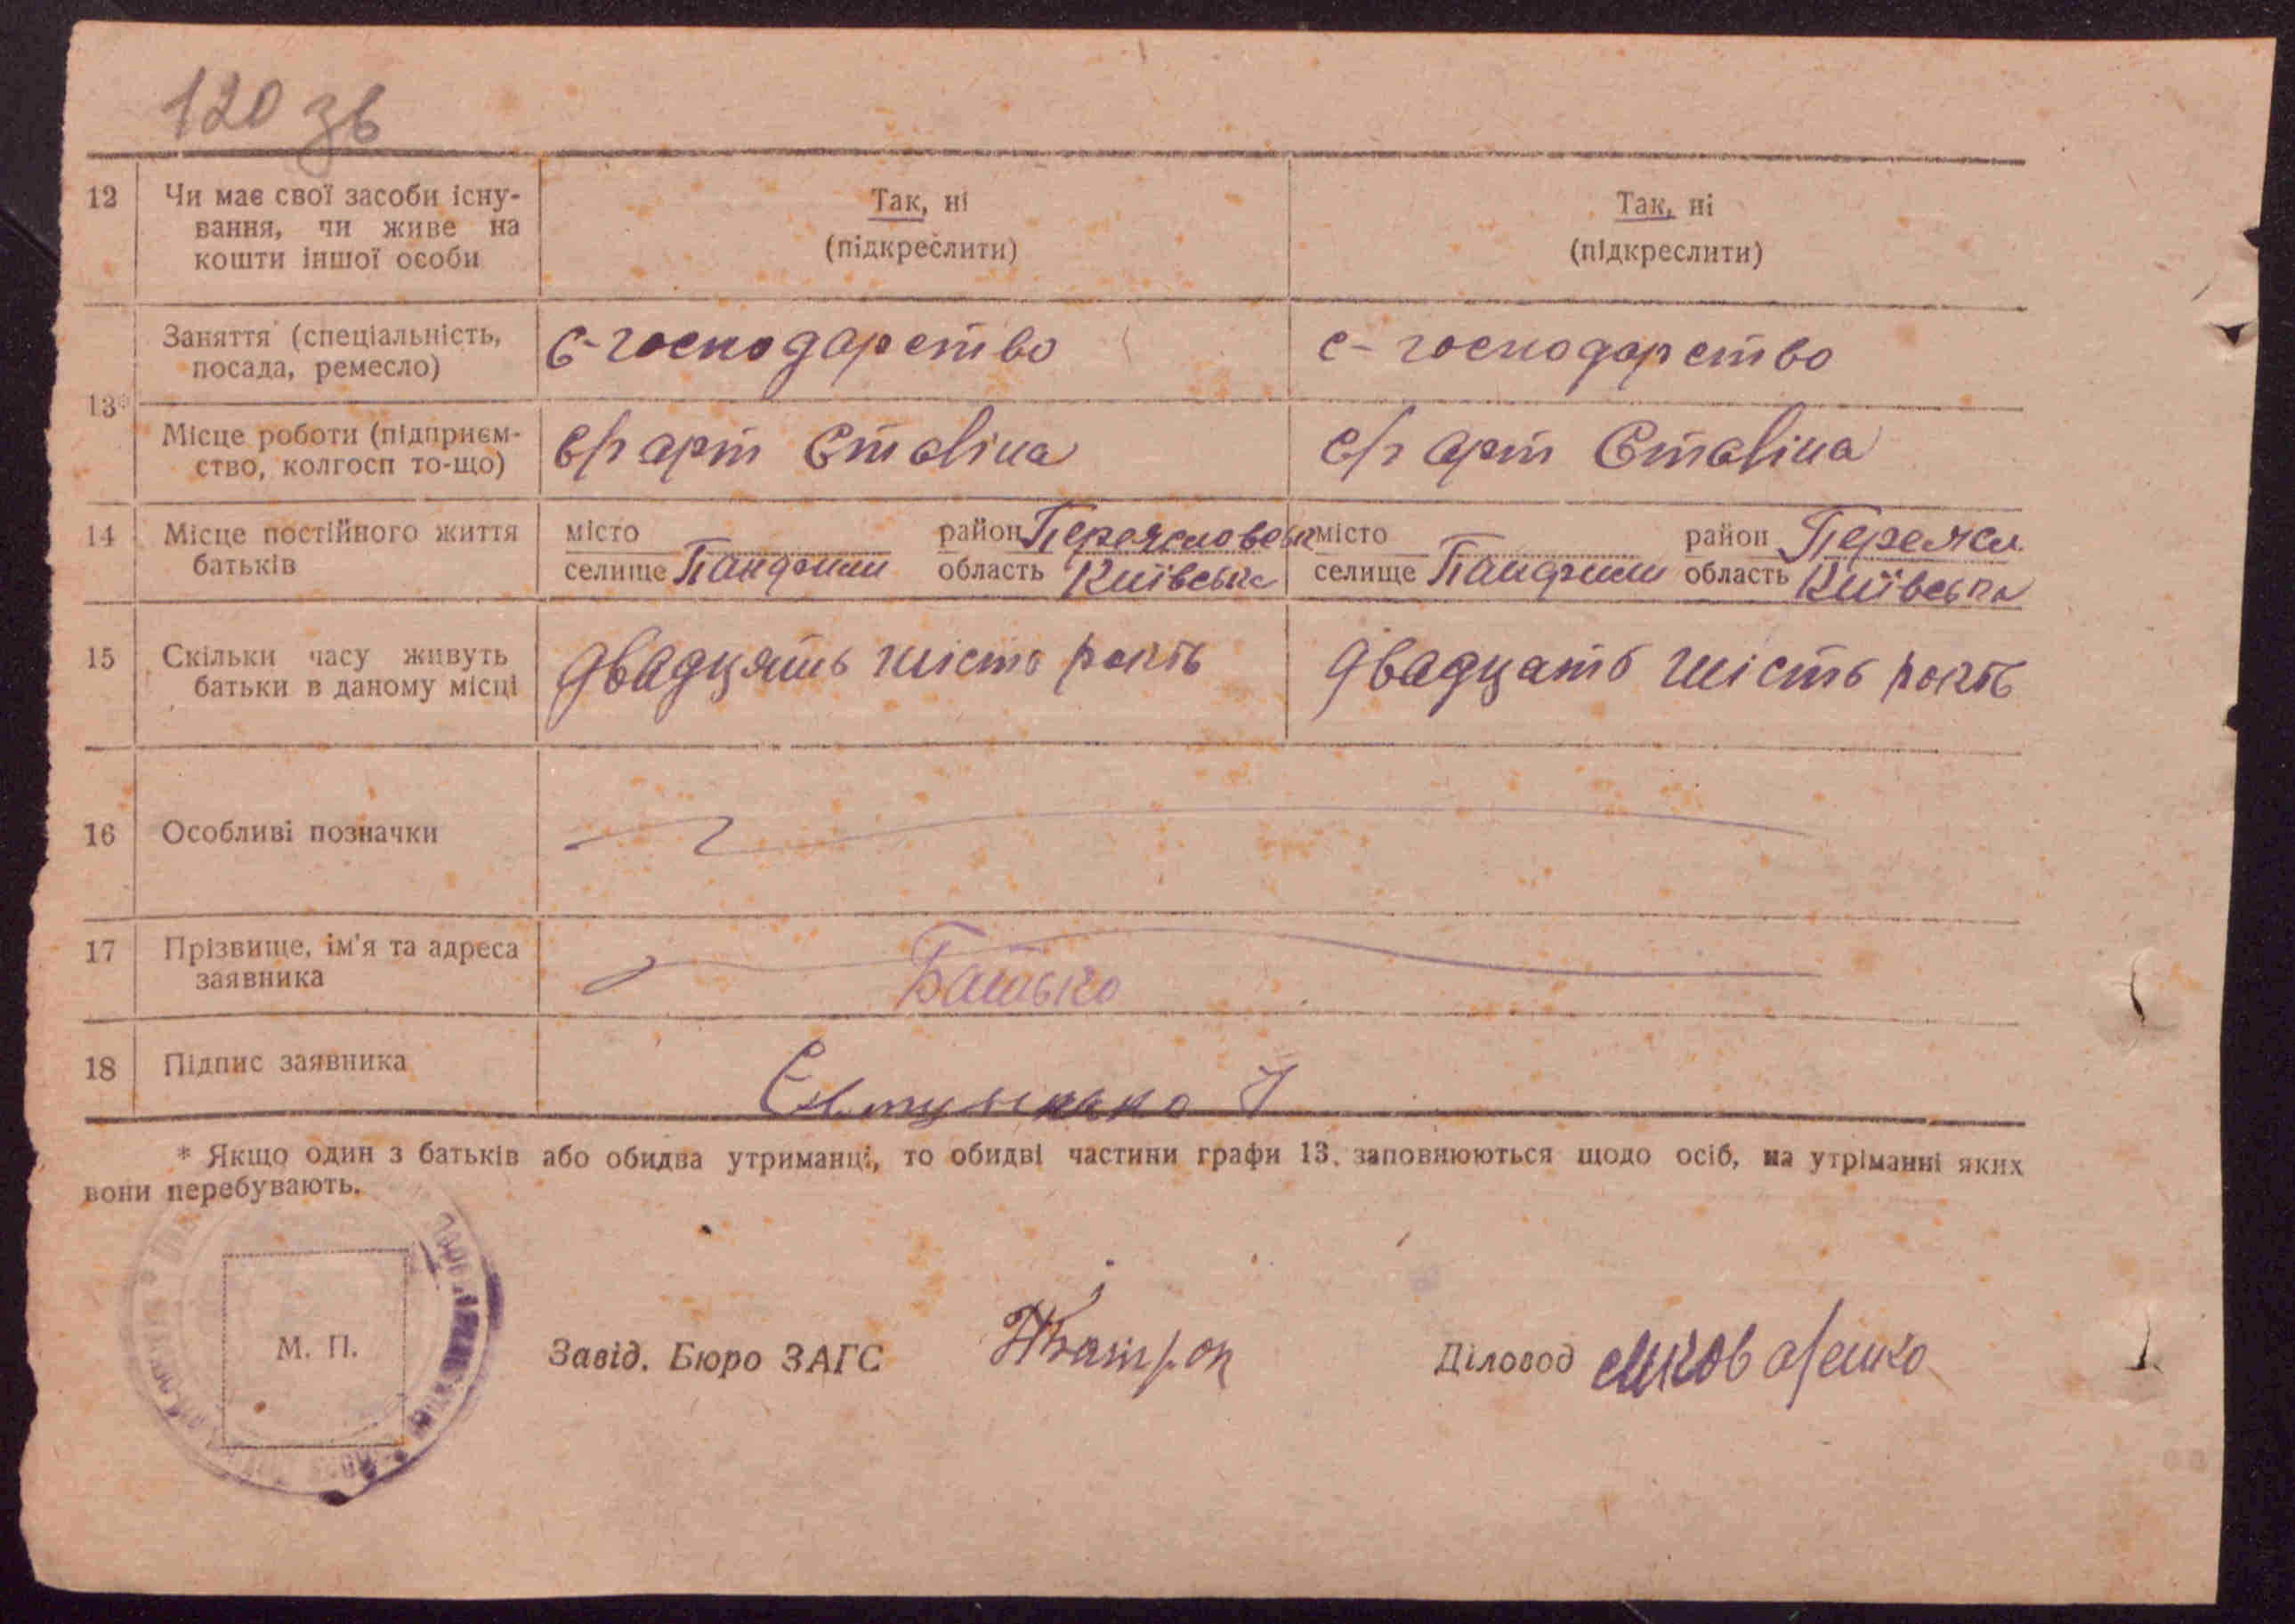 120 зв
12 Чи має свої засоби існу- Так, ні Так, ні
вання, чи живе на (підкреслити) (підкреслити)
кошти іншої особи
Заняття (спеціальність, с-господарство с-господарство
посада, ремесло)
13*
Місце роботи (підприєм- с/г арт Сталіна с/г арт Сталіна
ство, колгосп то-що)
14 Місце постійного життя місто район Переясловськ місто район Переясл.
батьків селище Панфили область Київська селище Панфили область Київська
15 Скільки часу живуть двадцять шість років двадцать шість років
батьки в даному місці
16 Особливі позначки
17 Прізвище, ім'я та адреса Батько
заявника
18 Підпис заявника
* Якщо один з батьків або обидва утриманці, то обидві частини графи 13. заповнюються щодо осіб, на утріманні яких
вони перебувають.
М. П.
Завід. Бюро ЗАГС Діловод